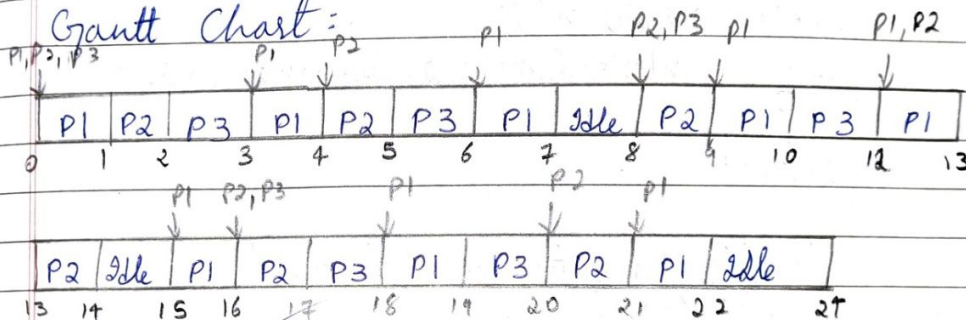 Gantt Chart :-
P1, P2, P3 P1 P2 P1 P2, P3 P1 P1, P2
P1 P2 P3 P1 P2 P3 P1 Idle P2 P1 P3 P1
0 1 2 3 4 5 6 7 8 9 10 12 13
P1 P2, P3 P1 P2 P1
P2 Idle P1 P2 P3 P1 P3 P2 P1 Idle
13 14 15 16 17 18 19 20 21 22 24